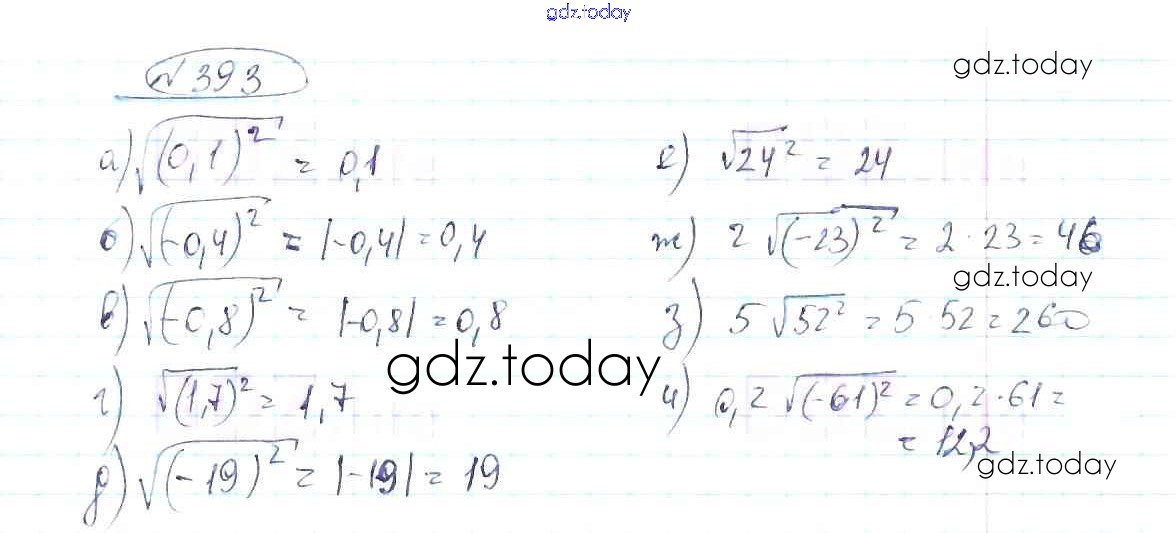 gdz.today
№ 393
gdz.today
а) √(0,1)² = 0,1
б) √(-0,4)² = |-0,4| = 0,4
в) √(-0,8)² = |-0,8| = 0,8
г) √(1,7)² = 1,7
д) √(-19)² = |-19| = 19
е) √24² = 24
ж) 2 √(-23)² = 2 · 23 = 46
gdz.today
з) 5 √52² = 5 · 52 = 260
gdz.today
и) 0,2 √(-61)² = 0,2 · 61 =
= 12,2
gdz.today